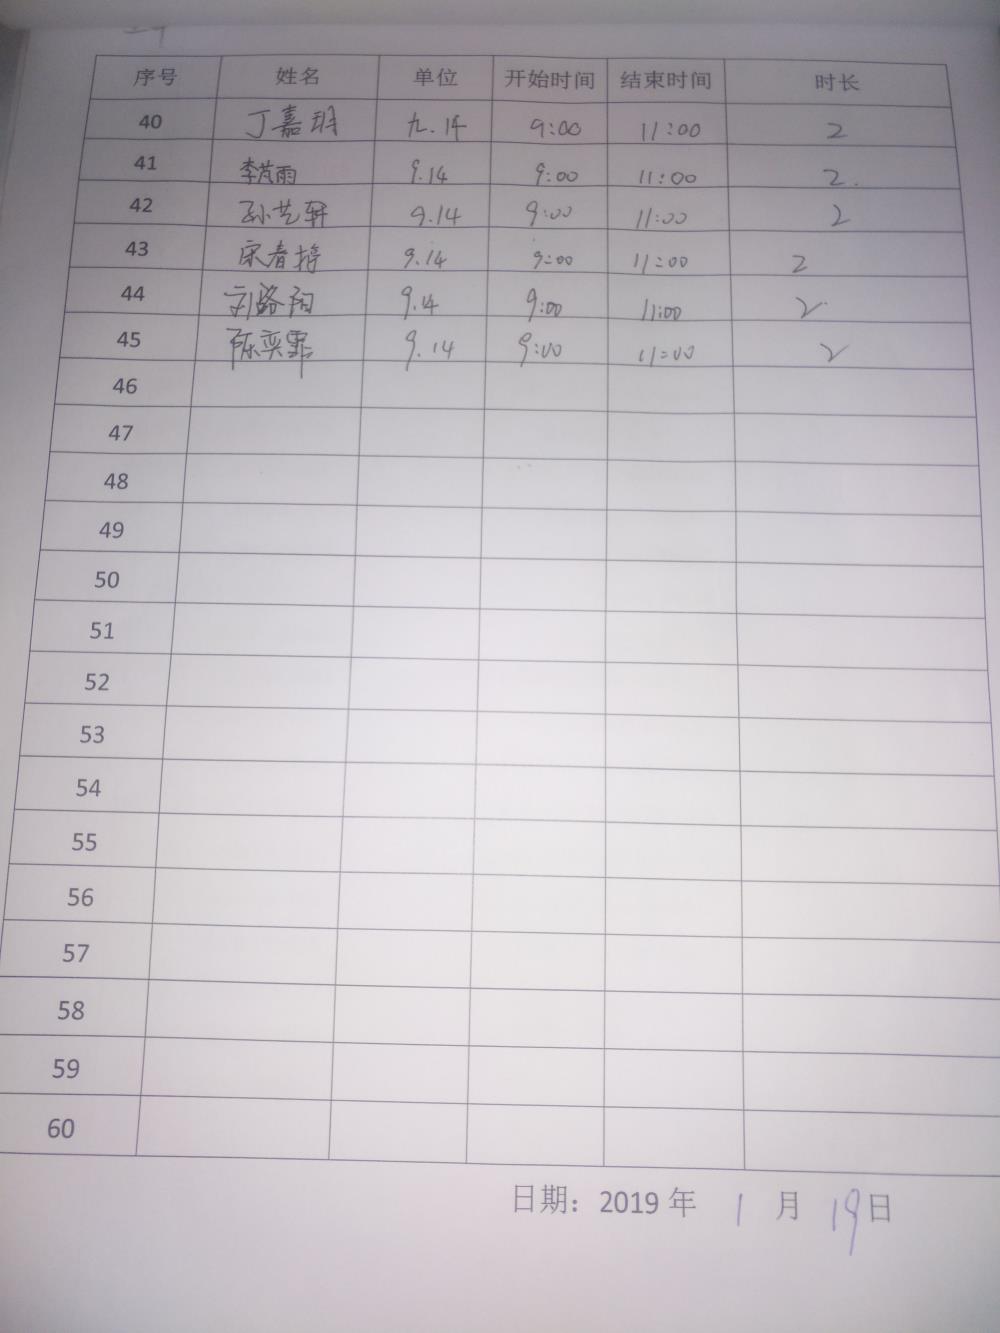 序号 姓名 单位 开始时间 结束时间 时长
40 丁嘉玥 九.14 9:00 11:00 2
41 李芃雨 9.14 9:00 11:00 2.
42 孙艺轩 9.14 9:00 11:00 2
43 宋春婷 9.14 9:00 11:00 2
44 刘路阳 9.14 9:00 11:00 2
45 陈奕霏 9.14 9:00 11:00 2
46
47
48
49
50
51
52
53
54
55
56
57
58
59
60
日期：2019年 1月 19日